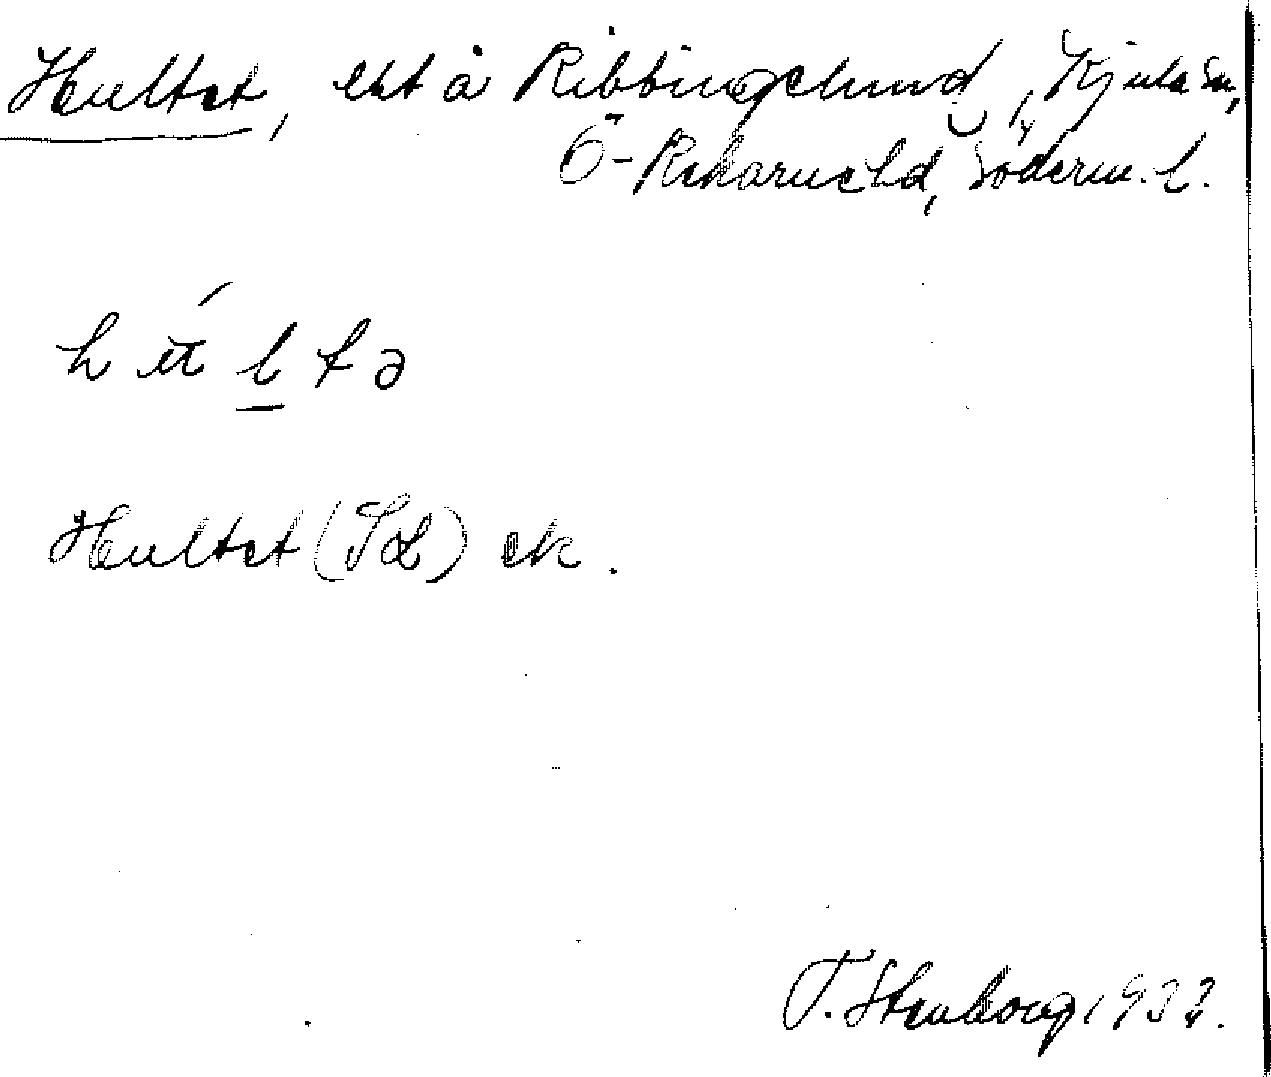 Hultet, ext å Ribbingelund, Kjula sn,
Ö-Rekarne hd, Söderm. l.
h l t ə
Hultet (SL) ek.
T. Stenborg 1933.